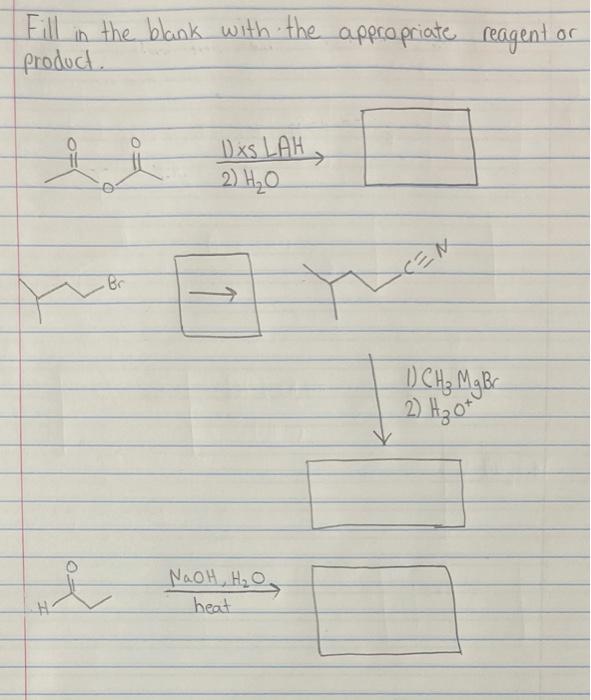 Fill in the blank with the appropriate reagent or
product.
O O
O
1) xs LAH
2) H₂O
Br
C≡N
1) CH₃MgBr
2) H₃O⁺
O
H
NaOH, H₂O
heat